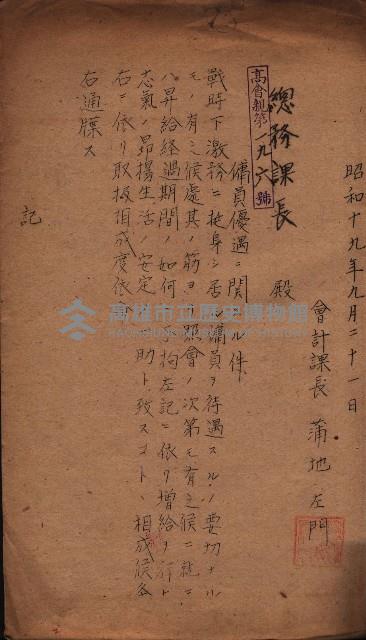 昭和十九年九月二十一日
會計課長 蒲地左門
總務課長 殿
高會親第一九六號
傭員優遇ニ関スル件
戰時下激務ニ挺身シ居ル傭員ヲ待遇スルノ要切ナル
モノ有之候處其ノ筋ヨリ照會ノ次第モ有之候ニ就テハ
昇給経過期間ノ如何ニ拘左記ニ依リ増給シ
志氣ノ昻揚生活ノ安定 助ト致スコトニ相成候條
右ニ依リ取扱相成度依
右通牒ス
記
高雄市立歷史博物館